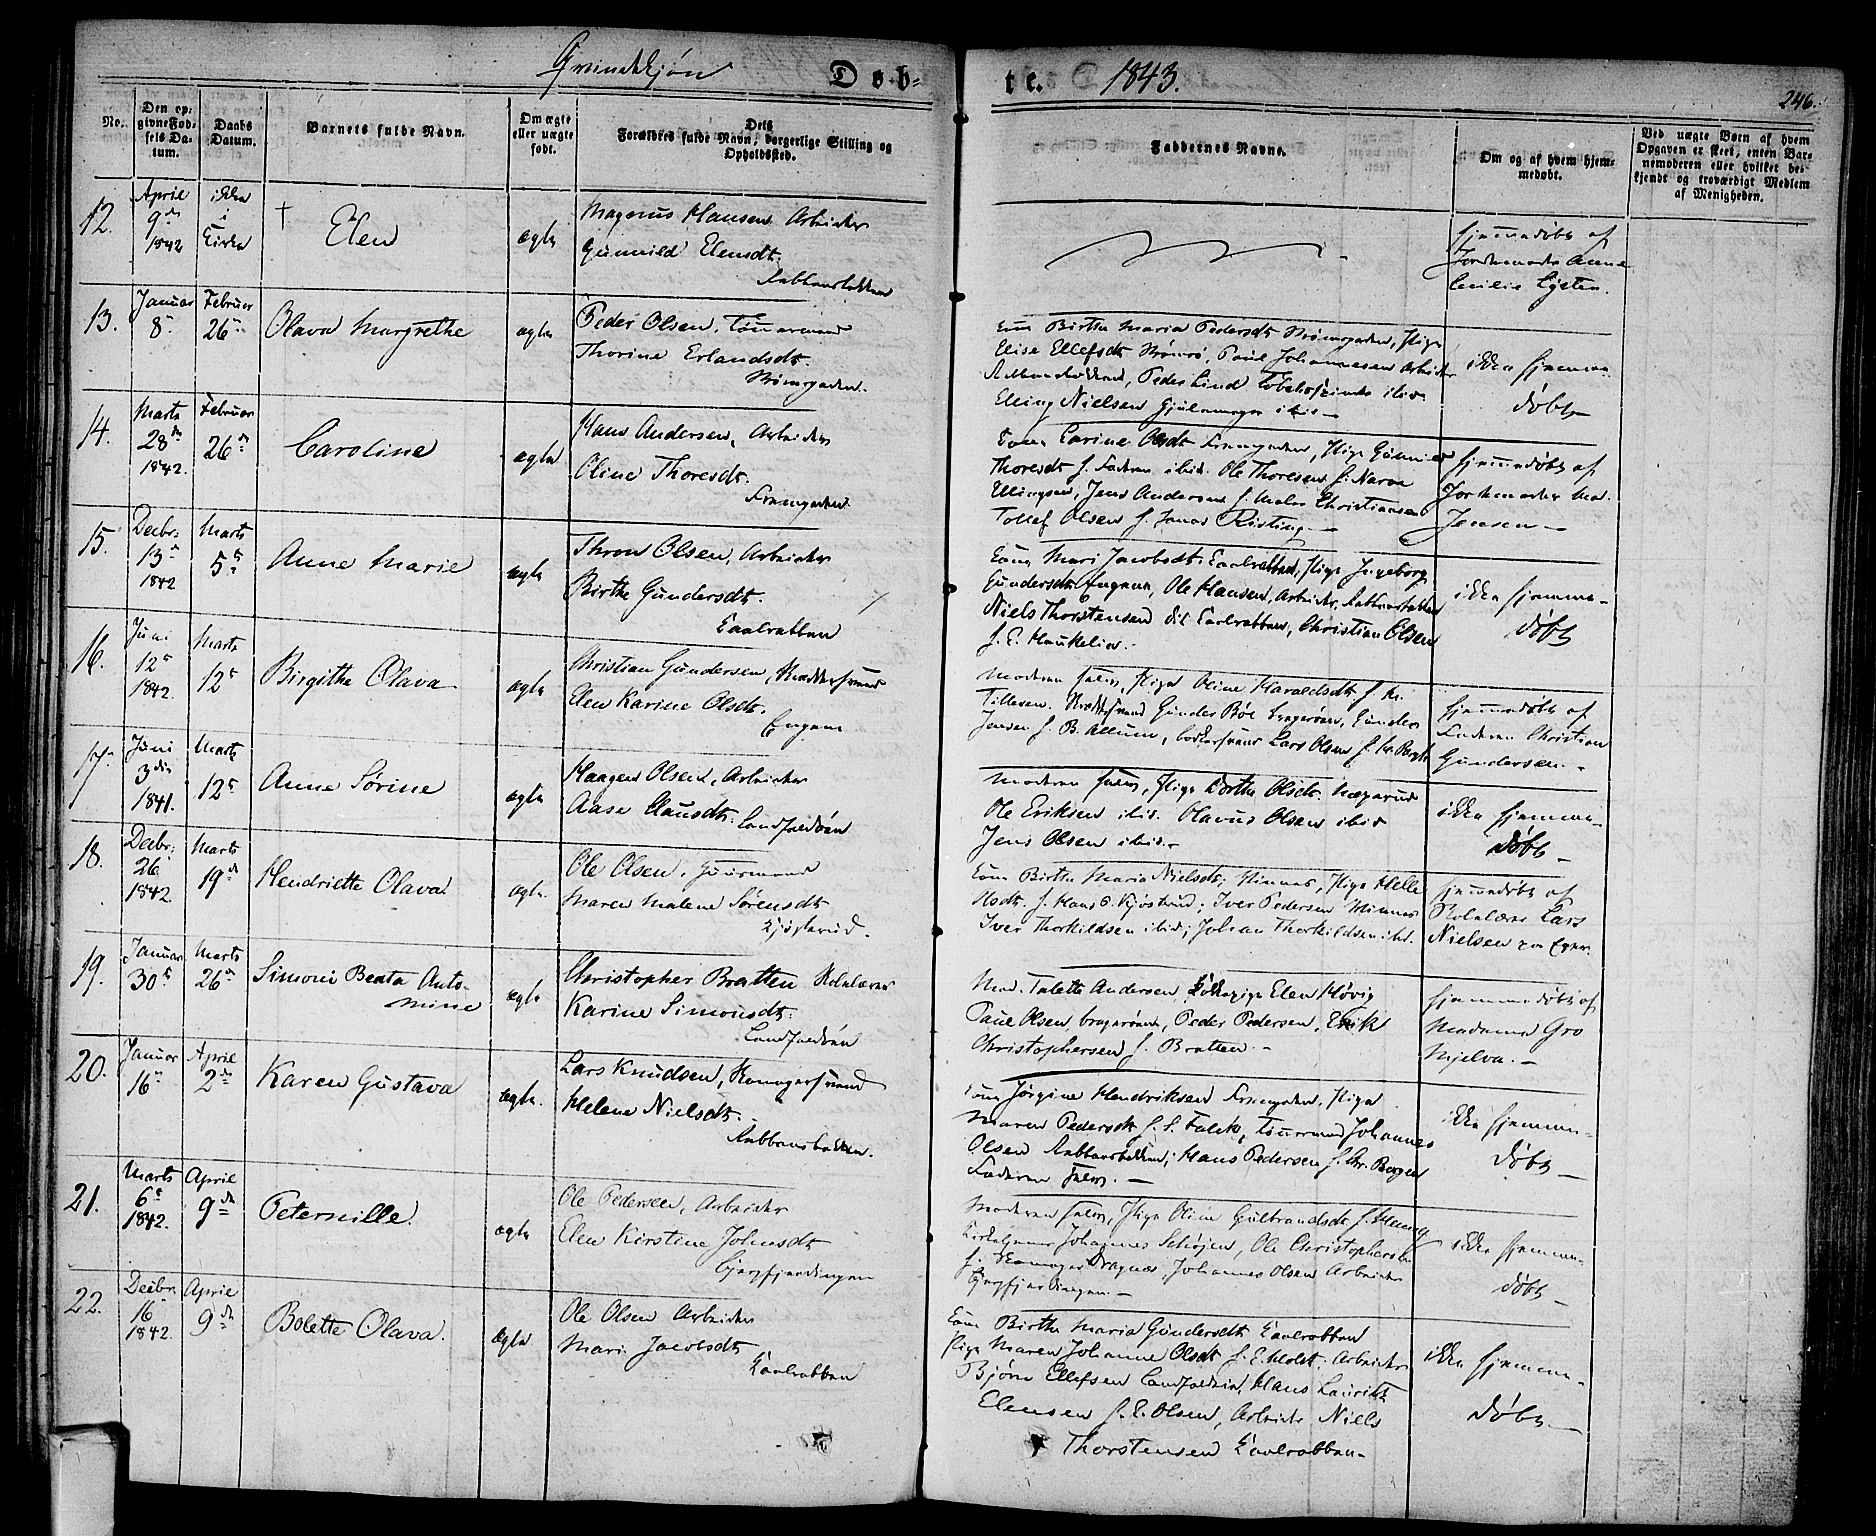 Qvindekjøn Døb-
te. 1843.
246.
No.
Den op-
givne Fød-
sels Da-
tum.
Daabs
Datum.
Barnets fulde Navn.
Om ægte
eller uægte
født.
Dets
Forældres fulde Navn, borgerlige Stilling og
Opholdssted.
Faddernes Navne.
Om og af hvem hjem-
medøbt.
Ved uægte Børn af hvem
Opgaven er skeet, enten Bar-
nemoderen eller hvilket be-
kjendt og troværdigt Medlem
af Menigheden.
12.
April
9de
1842
ikke
i
Kirke
†
Elen
ægte
Magnus Hansen Arbeider
Gunnild Elensdt.
Rabbansbakken
hjemmedøbt af
Jordemoder Anne
Cecilie
13.
Januar
8
Februar
26
Olava Margrethe
ægte
Peder Olsen, Tømmermand
Thorine Erlandsdt.
Strømgaden.
Kone Birthe Maria Pedersdt. Strømgaden, Pige
Elise Ellefsdt. Strømsø, Paul Johannesen Arbeider
Rabbansbakken, Peder Lind
Elling Nielsen ibid
ikke hjemme-
døbt
14.
Marts
28de
1842.
Februar
26
Caroline
ægte
Hans Andersen, Arbeider
Oline Thoresdt.
Tromgaden
Kone Karine Olsdt. Tromgaden, Pige Gunnild
Thoresdt. f. Faderen ibid. Ole Thoresen f. Narve
Ellingsen, Jens Andersen f. Maler Christiansen
Tollef Olsen f. Jonas Risting
hjemmedøbt af
Jordemoder Mad.
Jensen
15.
Decbr.
13
1842
Marts
5
Anne Marie
ægte
Thron Olsen, Arbeider
Birthe Gundersdt.
Kaalrabben
Kone Mari Jacobsdt. Kaalrabben, Pige Ingeborg
Gundersdt. Engene, Ole Hansen, Arbeider, Rabbansbakken
Niels Thorstensen dito Kaalrabben, Christian Olsen
f. E. Haukelien.
ikke hjemme-
døbt
16.
Juni
12
1842.
Marts
12
Birgitha Olava
ægte
Christian Gundersen, Skræddersvend
Elen Karine Olsdt.
Engene
Moderen selv, Pige Oline Haraldsdt. f. Kr.
Tillesen. Skræddersvend Gunder Bøe Bragerøen, Gunder
Jensen f. B. Allum, Bødkersvend Lars Olsen f. Kr. Bergh
hjemmedøbt af
Faderen Christian
Gundersen.
17.
Juni
3die
1841.
Marts
12
Anne Sørine
ægte
Haagen Olsen, Arbeider
Aase Clausdt. Landfaldøen
Moderen selv, Pige Dorthe Olsdt.
Ole Eriksen ibid. Olavus Olsen ibid
Jens Olsen ibid.
ikke hjemme-
døbt
18.
Decbr.
26
1842
Marts
19de
Hendriette Olava.
ægte
Ole Olsen, Huusmand
Maren Malene Sørensdt.
Kjøsterud.
Kone Birthe Maria Nielsdt. Himnes, Pige Helle
Olsdt. f. Hans P. Kjøsterud; Iver Pedersen Himnes
Iver Thorkildsen ibid; Johan Thorkildsen ibid.
hjemmedøbt af
Skolelærer Lars
Nielsen
19.
Januar
30
Marts
26
Simoni Beata Anto-
mine
ægte
Christopher Bratten Skolelærer
Karine Simonsdt.
Landfaldøen
Mad. Talette Andersen Elen Høvig
Paul Olsen, Bragerøen, Peder Pedersen, Erik
Christophersen f. Bratten.
hjemmedøbt af
Madame Gro
Mjelva.
20.
Januar
16
April
2den
Karen Gustava
ægte.
Lars Knudsen, Skomagersvend
Helene Nielsdt.
Rabbansbakken.
Kone Jørgine Hendriksen Tromgaden, Pige
Maren Pedersdt. f. S. Falck, Tømmermand Johannes
Olsen Rabbansbakken, Hans Pedersen f. Chr. Borgen
Faderen selv.
ikke hjemme-
døbt
21.
Marts
6
1842.
April
9de
Peternille.
ægte
Ole Pedersen, Arbeider
Elen Kirstine Johnsdt.
Bergfjerdingen
Moderen selv, Pige Oline Gulbrandsdt. f. Henney
Johannes Schøjen, Ole Christophersen
f. Skomager Dragnæs, Johannes Olsen Arbeider
Bergfjerdingen.
ikke hjemme-
døbt
22.
Decbr.
16
1842.
April
9de
Bolette Olava.
ægte
Ole Olsen Arbeider
Mari Jacobsdt.
Kaalrabben
Kone Birthe Maria Gundersdt. Kaalrabben
Pige Maren Johanne Olsdt. f. E. Holst. Arbeider
Bjørn Ellefsen Landfaldøen, Hans Lauritz
Elensen f. E. Olsen, Arbeider Niels
Thorstensen Kaalrabben
ikke hjemme-
døbt